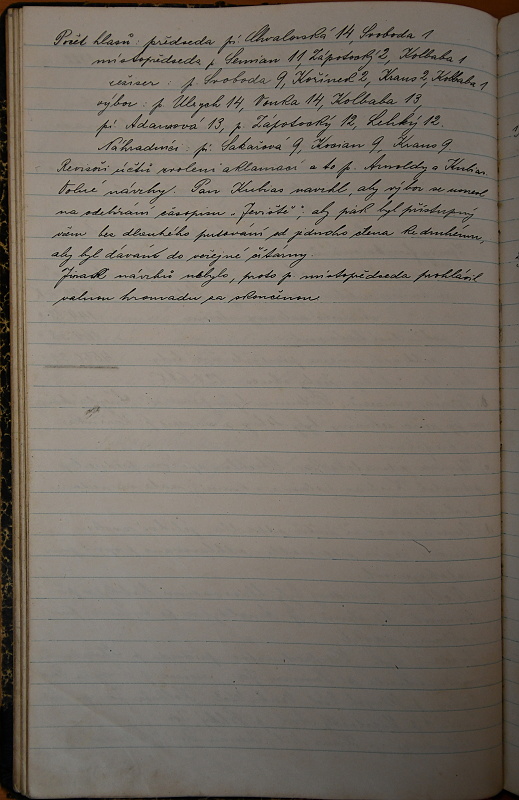 Počet hlasů: předseda pí Chvalovská 14, Svoboda 1
místopředseda p. Semian 11 Zápotocký 2, Kolbaba 1
p. Svoboda 9, Kořínek 2, Kraus 2, Kolbaba 1
výbor: p. Ulrych 14, Vonka 14, Kolbaba 13,
pí Adamová 13, p. Zápotocký 12, Lehký 12.
Náhradníci: pí Sakařová 9, Kosian 9, Kraus 9.
Revisoři účtů zvoleni aklamací a to p. Arnoldy a Kubias.
Volné návrhy. Pan Kubias navrhl, aby výbor se usnesl
na odebírání časopisu „Jeviště", aby pak byl přístupný
všem bez dlouhého putování od jednoho člena ke druhému,
aby byl dáván do veřejné čítárny.
Jinak návrhů nebylo, proto p. místopředseda prohlásil
valnou hromadu za skončenou.